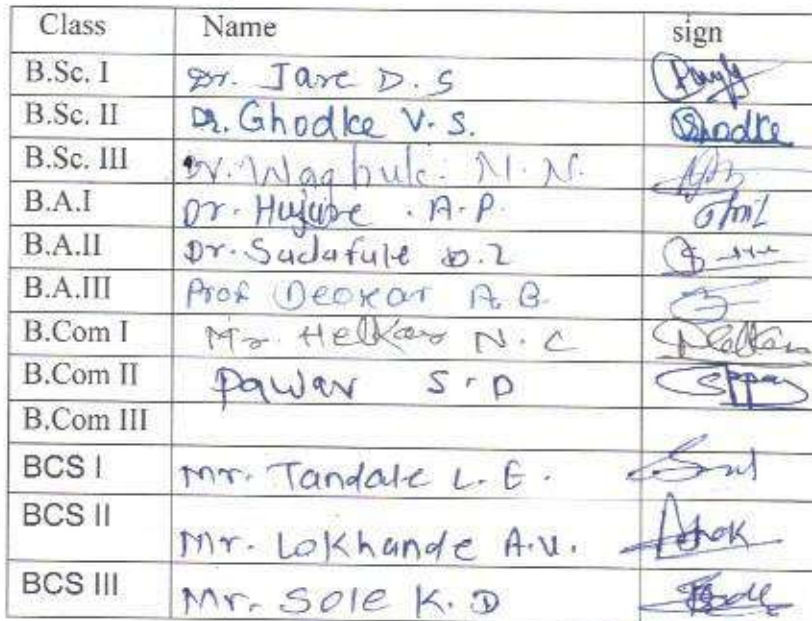 Class Name sign
B.Sc. I Dr. Jare D.S
B.Sc. II Dr. Ghodke V.S. Ghodke
B.Sc. III Dr. Waghule N.N.
B.A.I Dr. Hujare . A.P.
B.A.II Dr. Sadafule D.Z
B.A.III Prof Deokar A.B.
B.Com I Mr. Helkar N.C
B.Com II Pawar S.D
B.Com III
BCS I Mr. Tandale L.E.
BCS II Mr. Lokhande A.V. Ashok
BCS III Mr. Sole K.D